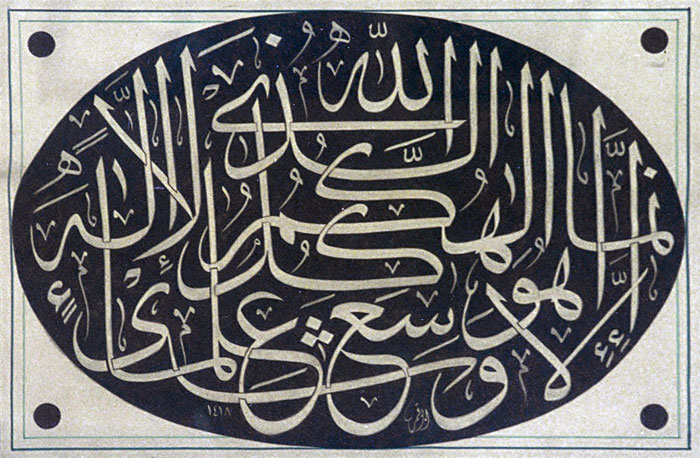 إِنَّمَا إِلَٰهُكُمُ اللَّهُ الَّذِى لَا إِلَٰهَ إِلَّا هُوَ وَسِعَ كُلَّ شَىْءٍ عِلْمًا
١٤١٨